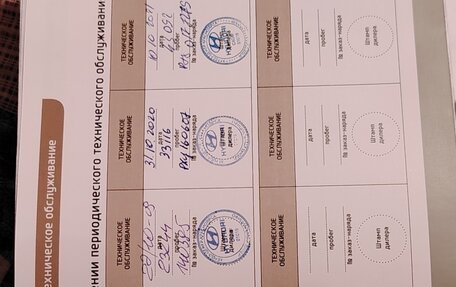 ехническое обслуживание
ении периодического технического обслуживани
ТЕХНИЧЕСКОЕ
ОБСЛУЖИВАНИЕ
дата
пробег
№ заказ-наряда
дилера
ТЕХНИЧЕСКОЕ
ОБСЛУЖИВАНИЕ
31.10.2020
дата
33116
пробег
№ заказ-наряда
дилера
ТЕХНИЧЕСКОЕ
ОБСЛУЖИВАНИЕ
дата
пробег
№ заказ-наряда
ТЕХНИЧЕСКОЕ
ОБСЛУЖИВАНИЕ
дата
пробег
№ заказ-наряда
Штамп
дилера
ТЕХНИЧЕСКОЕ
ОБСЛУЖИВАНИЕ
дата
пробег
№ заказ-наряда
Штамп
дилера
ТЕХНИЧЕСКОЕ
ОБСЛУЖИВАНИЕ
дата
пробег
№ заказ-наряда
Штамп
дилера